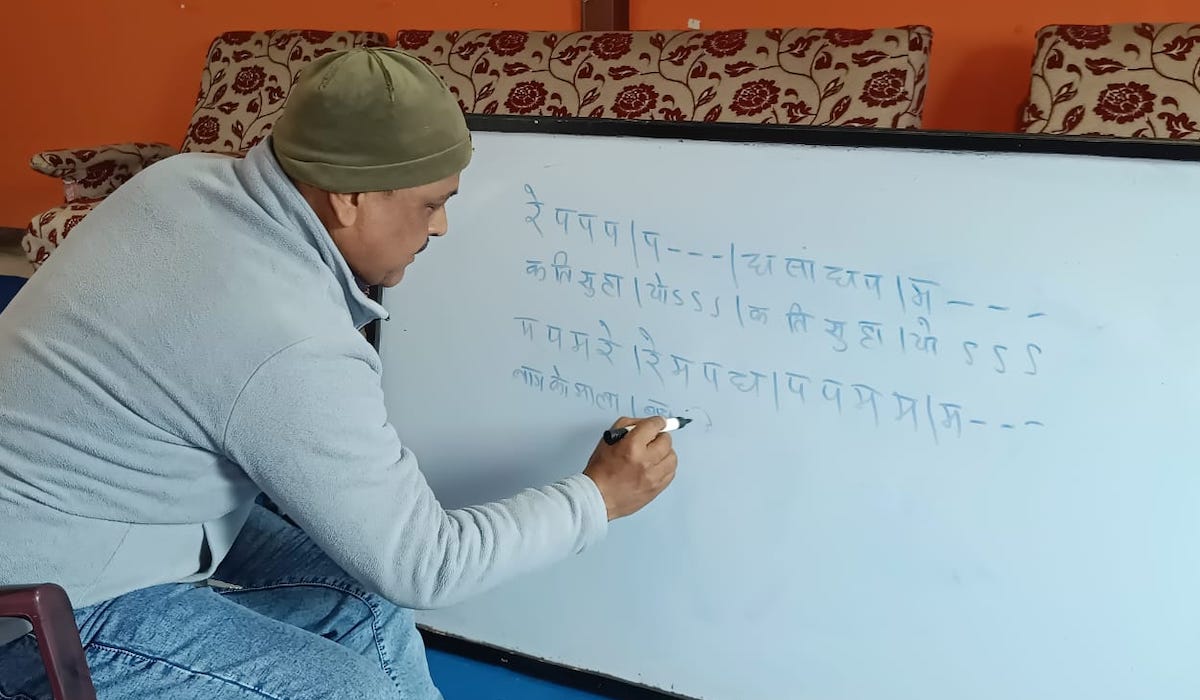 रे प प प | प - - - | ध सां ध प | म - - -
क ति सु हा | यो ऽ ऽ ऽ | क ति सु हा | यो ऽ ऽ ऽ
म प म रे | रे म प ध | प प म म | म - - -
को माला |